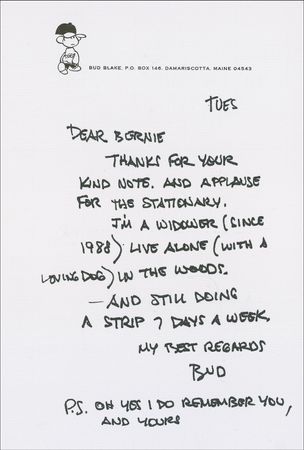 BUD BLAKE, P.O. BOX 146, DAMARISCOTTA, MAINE 04543
TUES
DEAR BERNIE
THANKS FOR YOUR
KIND NOTE. AND APPLAUSE
FOR THE STATIONARY.
I'M A WIDOWER (SINCE
1988) LIVE ALONE (WITH A
LOVING DOG) IN THE WOODS.
— AND STILL DOING
A STRIP 7 DAYS A WEEK.
MY BEST REGARDS
BUD
P.S. OH YES I DO REMEMBER YOU,
AND YOURS